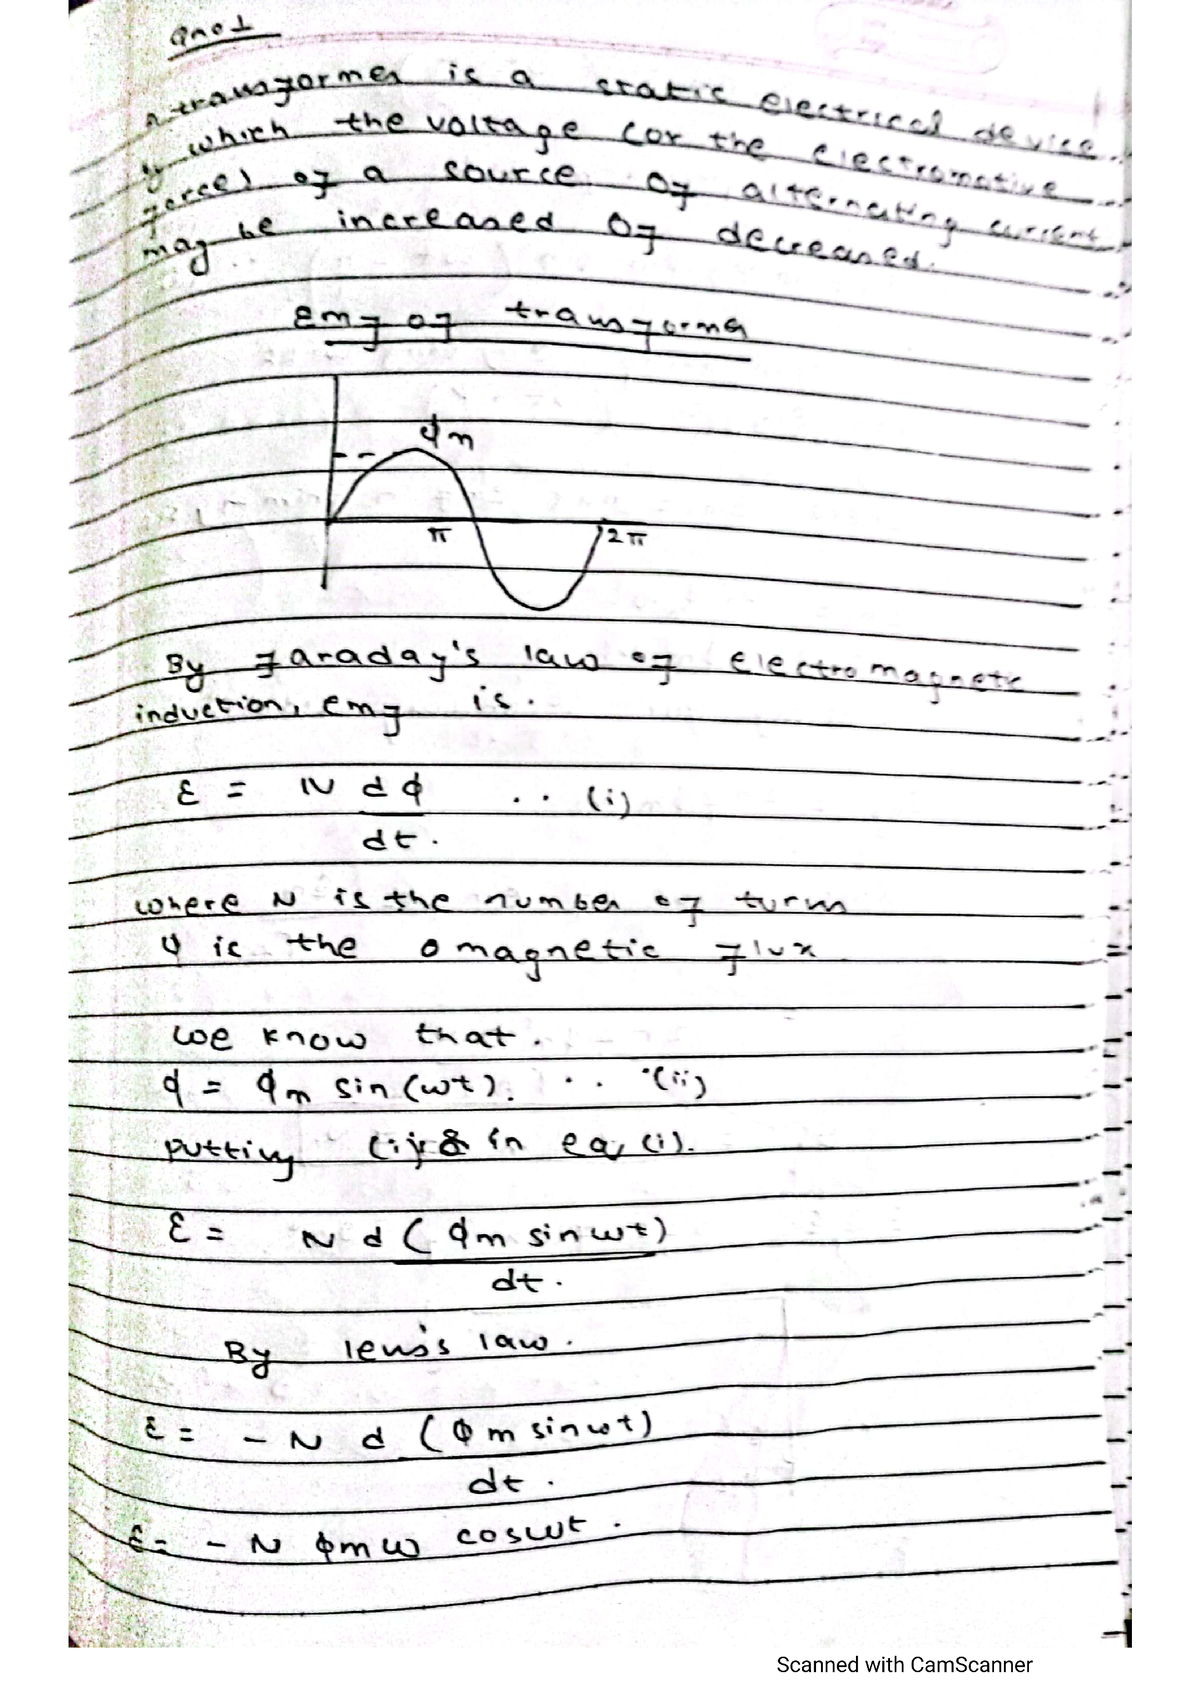 Qno 1
A transformer is a static electrical device
by which the voltage (or the electromotive
force) of a source of alternating current
may be increased of decreased.
emf of transforma
ϕm
π
2π
By Faraday's law of electromagnetc
induction, emf is.
ε = N dϕ .. (i)
dt.
where N is the number of turns
ϕ is the magnetic flux
we know that.
ϕ = ϕm sin(ωt). .. (ii)
putting (ii) in eq (i).
ε = N d(ϕm sinωt)
dt.
By lens's law.
ε = - N d (ϕm sinωt)
dt.
ε = - N ϕm ω cosωt.
Scanned with CamScanner